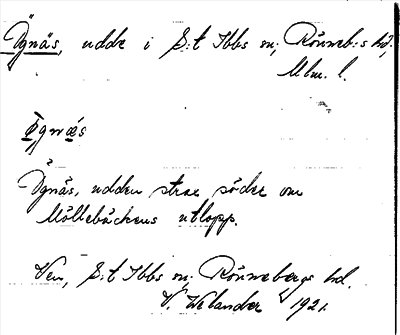 Ögnäs, udde i S:t Ibbs sn; Rönneb:s hd;
Mlm. l.
øgnæs
Ögnäs, udden strax söder om
Möllebäckens utlopp.
Ven, S:t Ibbs sn; Rönnebergs hd.
V. Welander 1921.